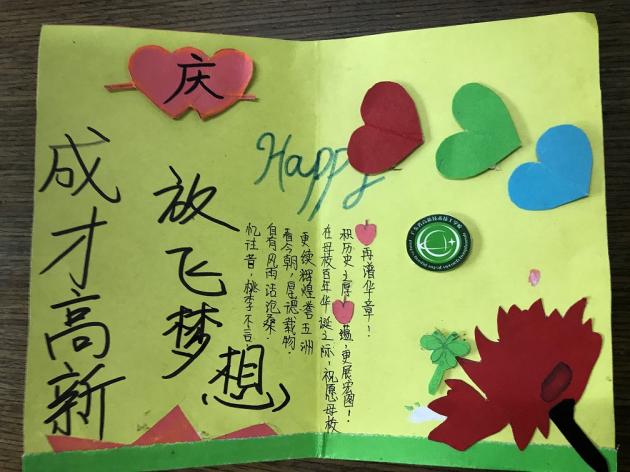 庆
成才高新
放飞梦想
Happy
忆往昔,桃李不言
自有风雨话沧桑.
看今朝,厚德载物.
更续辉煌誉五洲
在母校百年华诞之际,祝愿母校
积历史之厚蕴,更展宏图!
再谱华章!